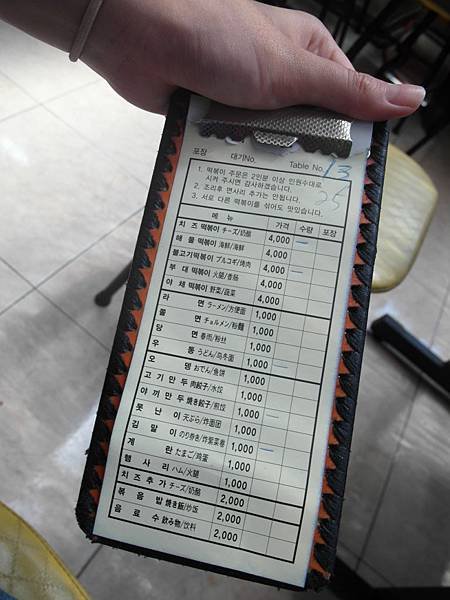 포장 대기No. Table No. 13
25
1. 떡볶이 주문은 2인분 이상 인원수대로
시켜 주시면 감사하겠습니다.
2. 조리후 면사리 추가는 안됩니다.
3. 서로 다른 떡볶이를 섞어도 맛있습니다.
메 뉴 가격 수량 포장
치즈 떡볶이 チーズ/奶酪 4,000
해물 떡볶이 海鮮/海鲜 4,000
불고기떡볶이 プルコギ/烤肉 4,000
부대 떡볶이 火腿/香肠 4,000
야채 떡볶이 野菜/蔬菜 4,000
라 면 ラーメン/方便面 1,000
쫄 면 チョルメン/粉麵 1,000
당 면 春雨/粉丝 1,000
우 동 うどん/乌冬面 1,000
오 뎅 おでん/鱼饼 1,000
고기만두 肉餃子/水饺 1,000
야끼만두 焼き餃子/煎饺 1,000
못난이 天ぷら/炸面团 1,000
김말이 のり巻き/炸紫菜卷 1,000
계 란 たまご/鸡蛋 1,000
햄사리 ハム/火腿 1,000
치즈추가 チーズ/奶酪 2,000
볶음밥 焼き飯/炒饭 2,000
음료수 飲み物/饮料 2,000